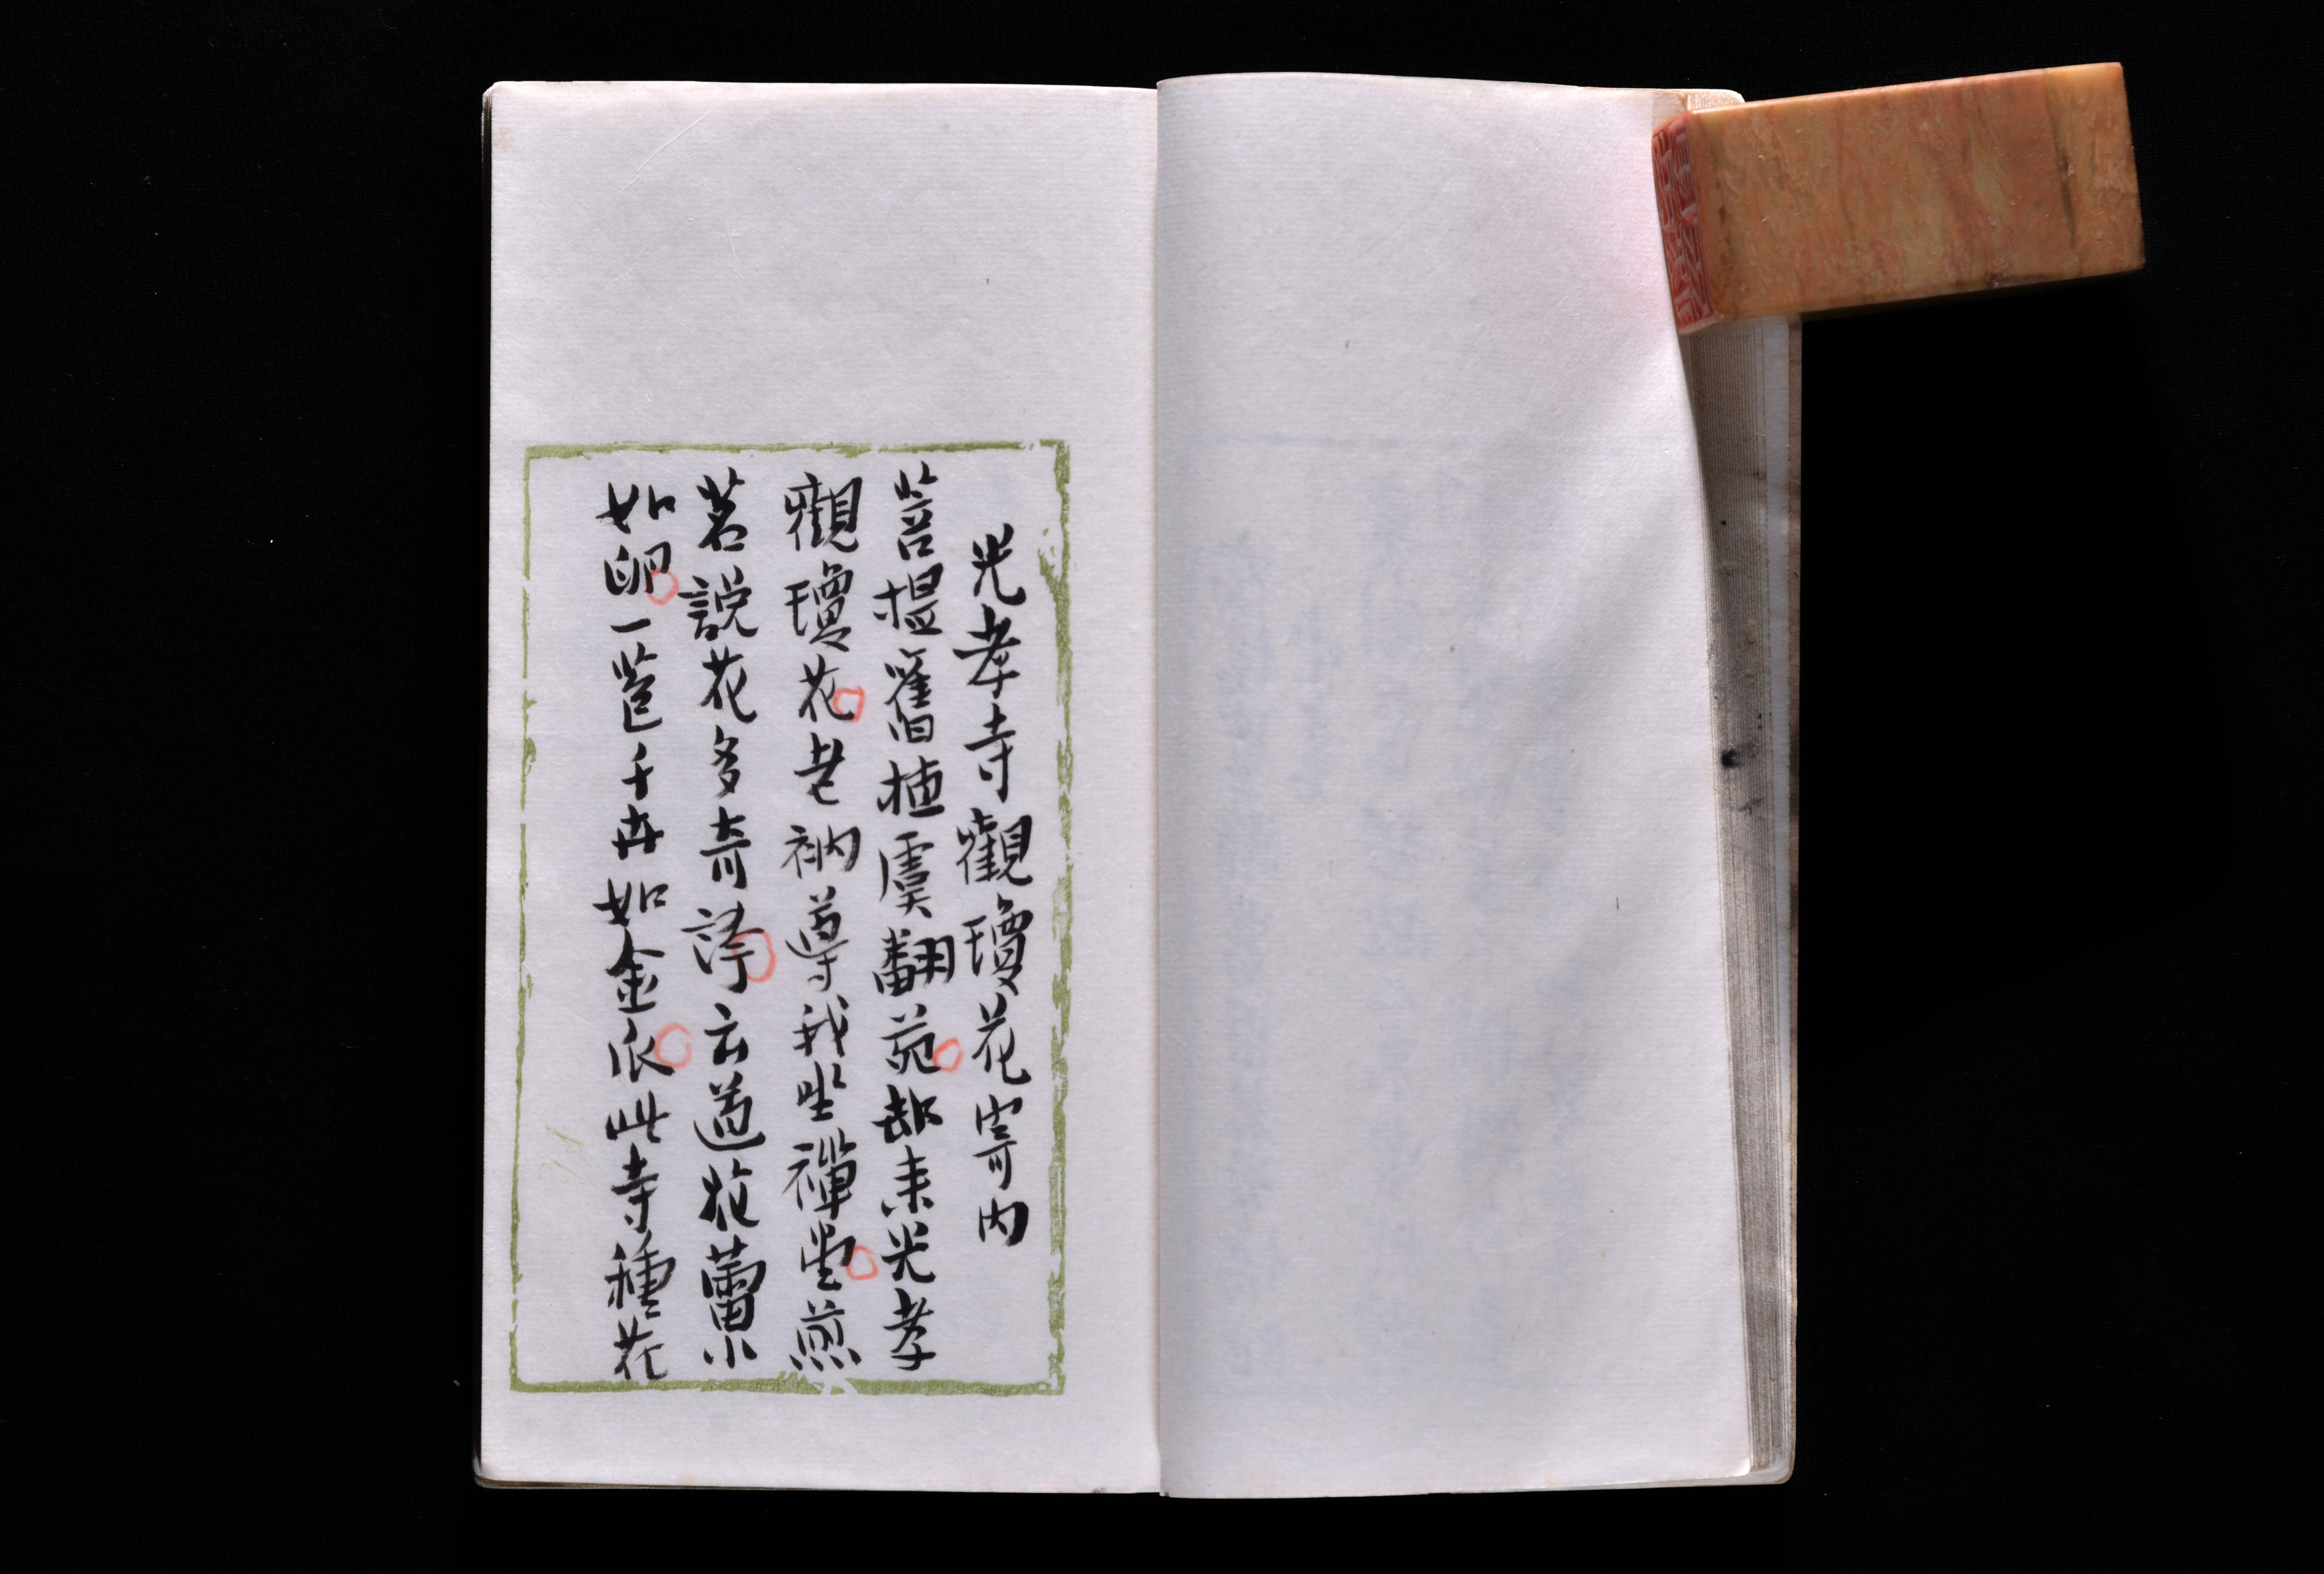 光孝寺觀瓊花寄内
菩提舊植虞翻苑却來光孝
觀瓊花老衲導我坐禪堂煎
茗説花多奇誇云道花蕾小
如卵一苞千卉如金此寺種花